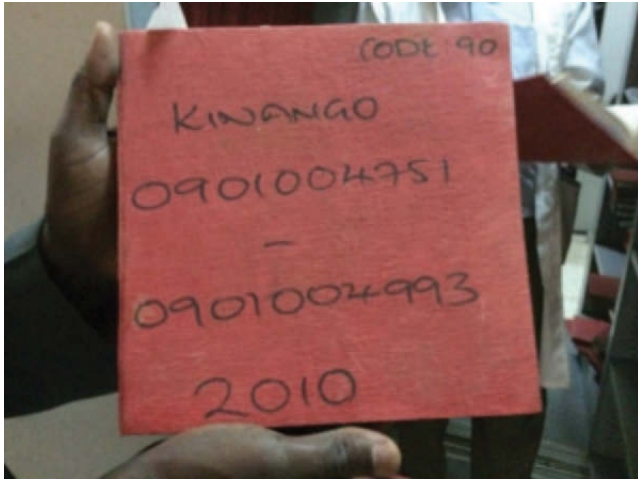 CODE 90
KINANGO
0901004751
-
0901004993
2010